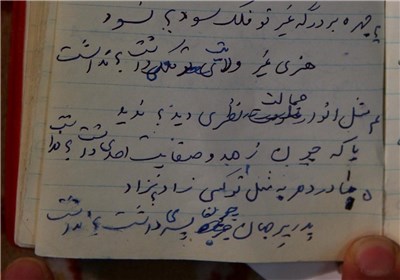 چهره بر درگه غیر تو فلک سود؟ نسود
هنری غیر ولای تو ملک داشت؟ نداشت
مثل انوار جمالت نظری دید؟ ندید
یا که چون زهد و صفایت احدی داشت؟ نداشت
۵ مادر دهر به مثل تو کسی زاد؟ نزاد
پدر پیر جهان چون تو پسری داشت؟ نداشت